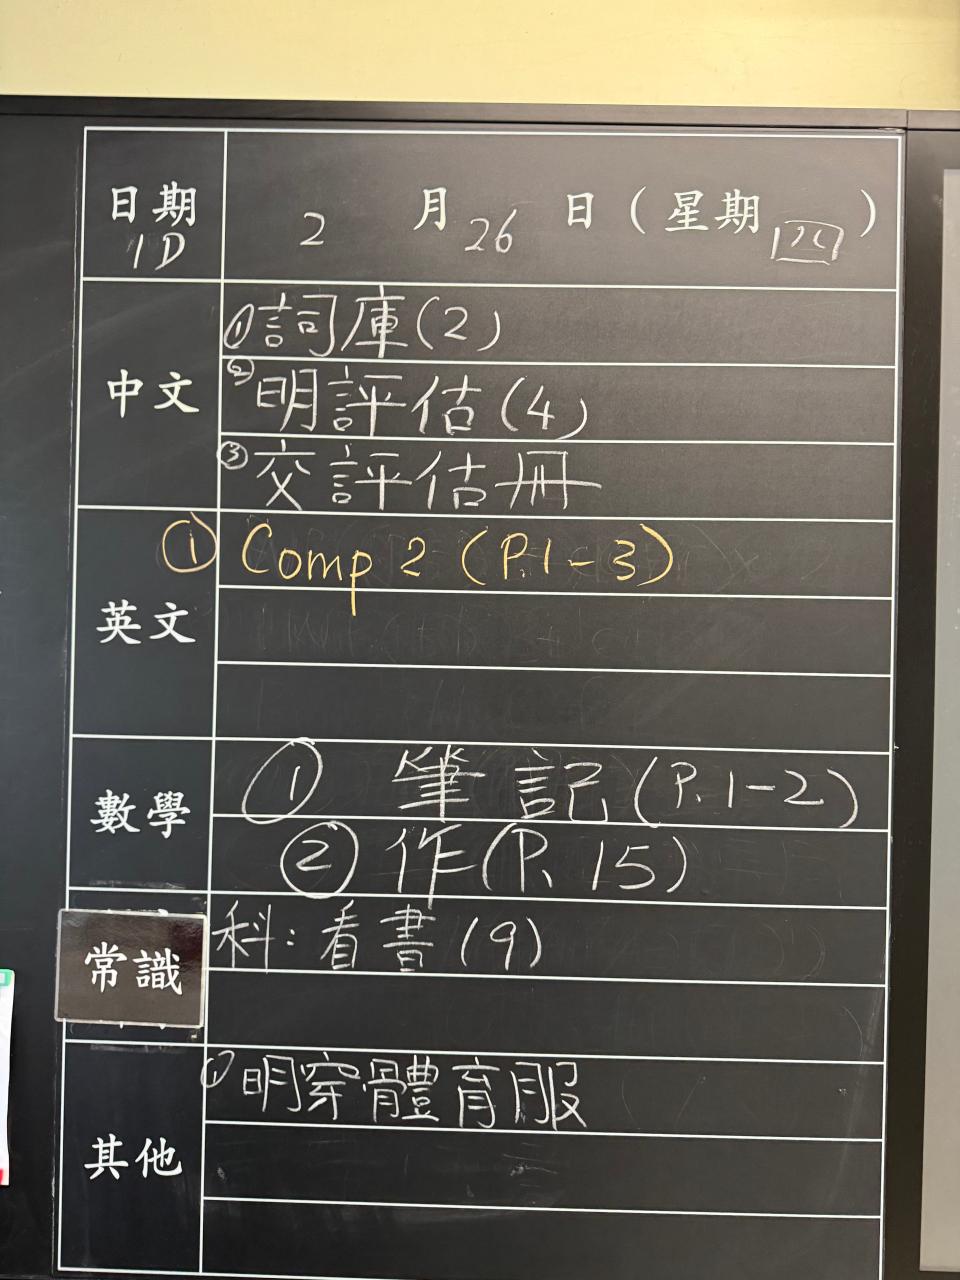 日期 2 月 26 日（星期四）
1D
中文
①詞庫(2)
②明評估(4)
③交評估冊
英文
① Comp 2 (P.1-3)
數學
① 筆記(P.1-2)
② 作(P.15)
常識
科:看書(9)
其他
①明穿體育服